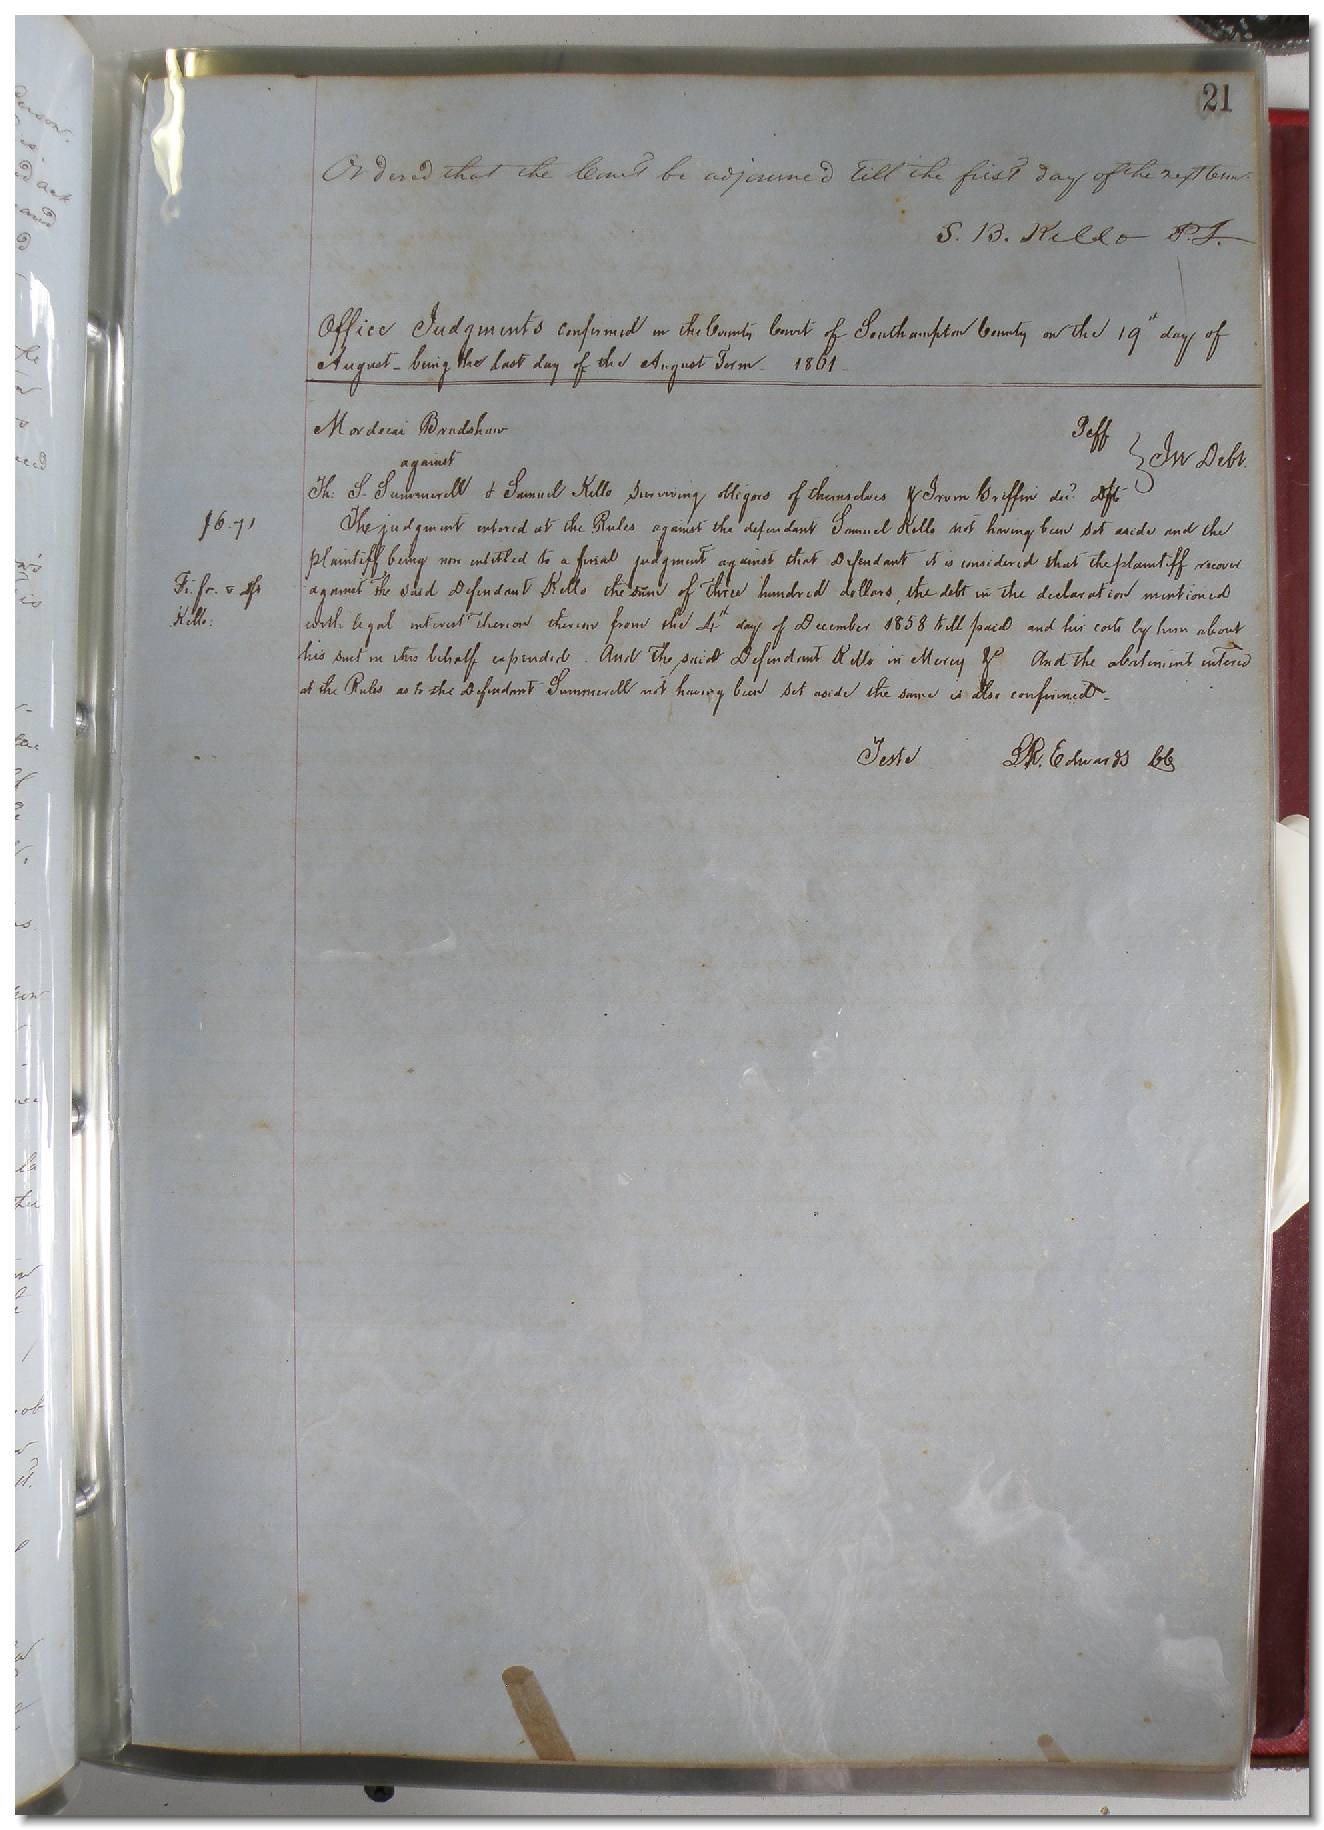 21
Ordered that the Court be adjourned till the first day of the next term.
S. B. Kello P.J.
Office Judgments confirmed in the County Court of Southampton County on the 19th day of
August - being the last day of the August Term 1861
Mordecai Bradshaw Plff
against } In Debt.
Th: S. Summerell & Samuel Kello surviving obligors of themselves & Griffin dec? Dfts
The judgment entered at the Rules against the defendant Samuel Kello not having been set aside and the
plaintiff being now entitled to a final judgment against that Defendant it is considered that the plaintiff recover
against the said Defendant Kello the sum of three hundred dollars, the debt in the declaration mentioned
with legal interest thereon from the 4th day of December 1858 till paid and his costs by him about
his suit in this behalf expended. And the said Defendant Kello in Mercy &c And the abatement entered
at the Rules as to the Defendant Summerell not having been set aside the same is also confirmed -
Teste L.R. Edwards CC
Fi. fa. v Df
Kello: